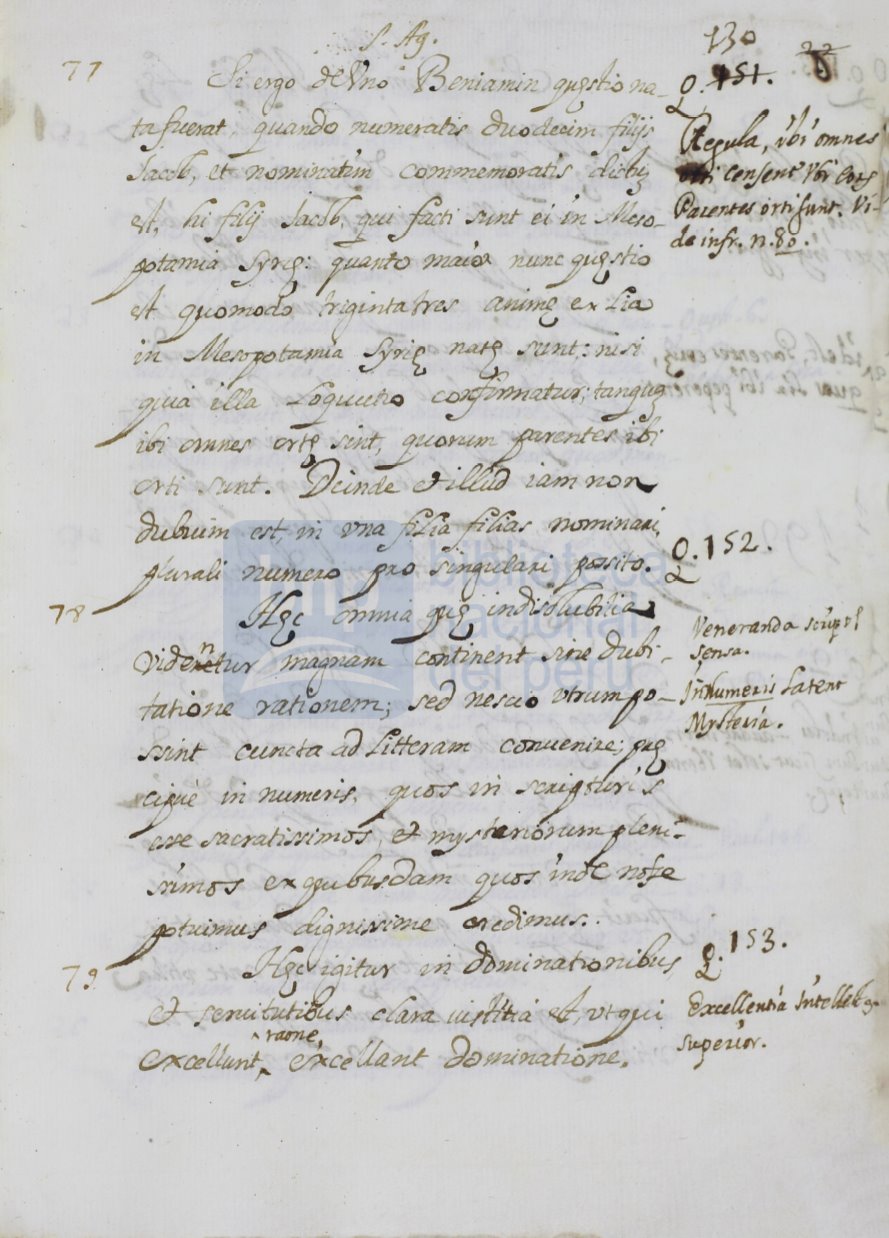 S. Ag.
130
77
Si ergo de Vno Beniamin quęstio na-
ta fuerat, quando numeratis duodecim filijs
Jacob, et nominatim commemoratis dictũ
est, hi filij Jacob, qui facti sunt ei in Meso-
potamia Syrię: quanto maior nunc quęstio
est quomodo triginta tres animę ex Lia
in Mesopotamia Syrię natę sunt: nisi
quia illa Loquutio confirmatur, tanquã
ibi omnes ortę sint, quorum parentes ibi
orti sunt. Deinde et illud iam non
dubium est, in vna filia filias nominari
plurali numero pro singulari posito.
Q. 151.
Regula, vbi omnes
orti censent' vbi
Parentes orti sunt. Vi-
de infr. n. 80.
78
Hęc omnia quę indisolubilia
videntur magnam continent sine dubi-
tatione rationem; sed nescio vtrum po-
ssint cuncta ad Litteram convenire; pre
cipuè in numeris, quos in scripturis
esse sacratissimos, et mysteriorum pleni-
ssimos ex quibusdam quos inde nosse
potuimus dignissime credimus.
Q. 152.
Veneranda script.
sensa.
In Numeris Latent
Mysteria.
79
Hęc igitur in dominationibus
et servitutibus clara iustitia est, vt qui
excellunt raone, excellant dominatione.
Q. 153.
Excellentia
superior.